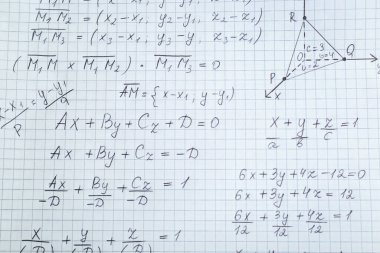 M₁M₂ = (x₂-x₁, y₂-y₁, z₂-z₁)
M₁M₃ = (x₃-x₁, y₃-y, z₃-z₁)
(M₁M × M₁M₂) · M₁M₃ = 0
x-x₁/p = y-y₁/q
AM = {x-x₁, y-y₁)
Ax + By + Cz + D = 0
Ax + By + Cz = -D
Ax/-D + By/-D + Cz/-D = 1
x/ + y/ + z/ = 1
R
c=3
O
b=4
Q
a=2
P
x
x/a + y/b + z/c = 1
6x+3y+4z-12=0
6x+3y+4z=12
6x/12 + 3y/12 + 4z/12 = 1